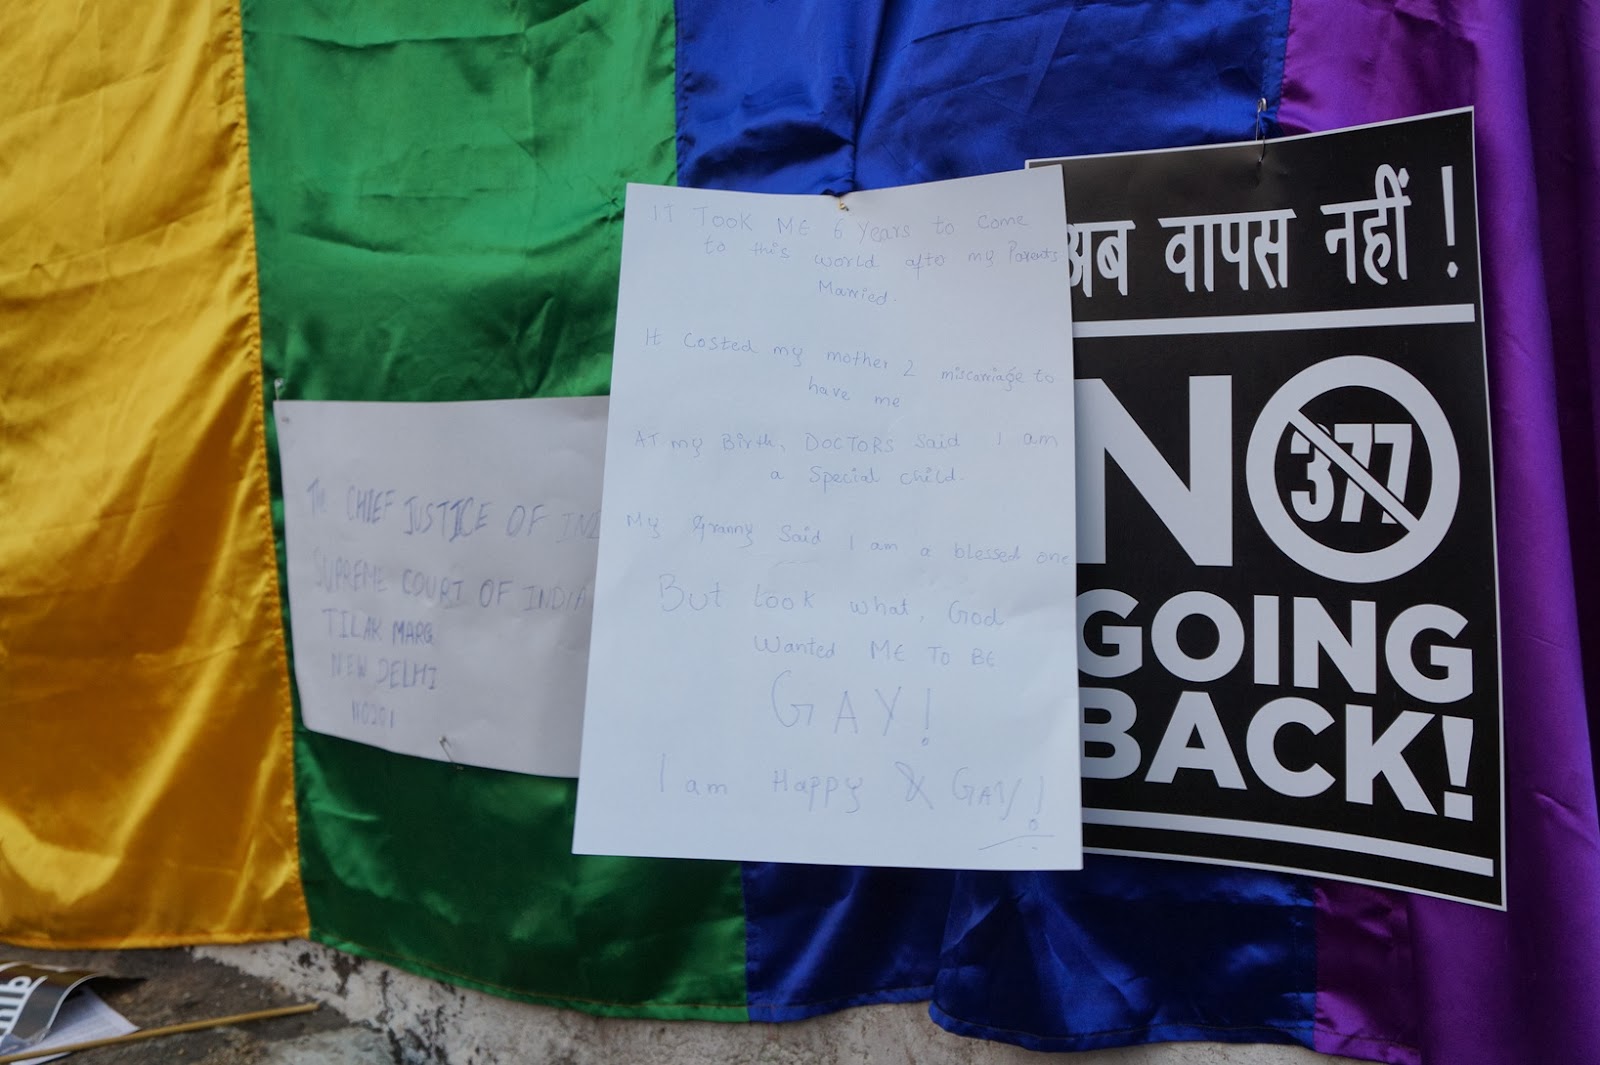 The CHIEF JUSTICE OF IND
SUPREME COURT OF INDIA
TILAK MARG
NEW DELHI
110201
IT TOOK ME 6 Years to come
to this world after my Parents
Married.
It costed my mother 2 miscarriage to
have me
AT my Birth, DOCTORS said I am
a special child.
My Granny said I am a blessed one
But look what, God
wanted ME TO BE
GAY!
I am Happy & GAY!
अब वापस नहीं!
NO
377
GOING
BACK!